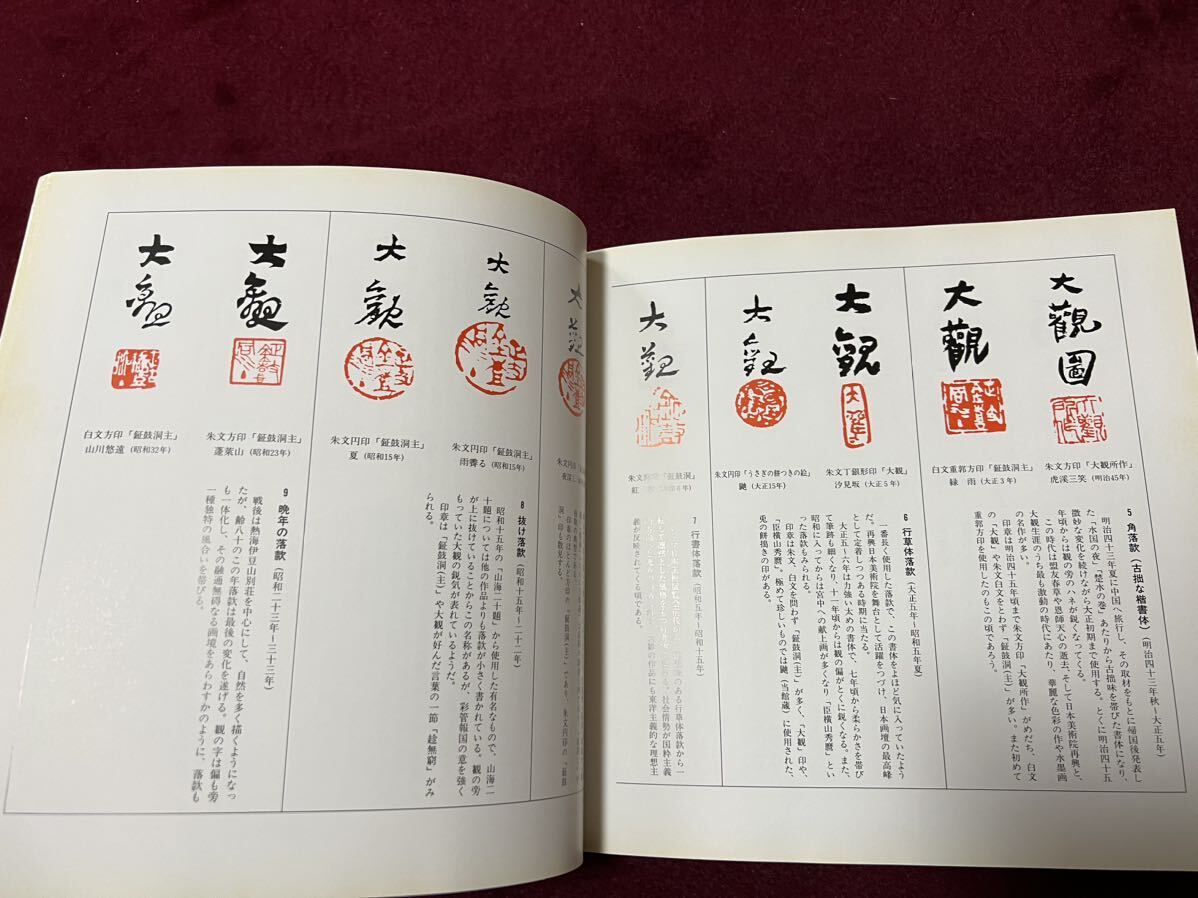 大觀圖
朱文方印「大観所作」
虎渓三笑（明治45年）
大觀
白文重郭方印「鉦鼓洞主」
緑　雨（大正3年）
5　角落款（古拙な楷書体）（明治四十三年秋～大正五年）
明治四十三年夏に中国へ旅行し、その取材をもとに帰国後発表し
た「水国の夜」「楚水の巻」あたりから古拙味を帯びた書体になり、
微妙な変化を続けながら大正初期まで使用する。とくに明治四十五
年頃からは観の旁のハネが鋭くなってくる。
この時代は盟友春草や恩師天心の逝去、そして日本美術院再興と、
大観生涯のうち最も激動の時代にあたり、華麗な色彩の作や水墨画
の名作が多い。
印章は明治四十五年頃まで朱文方印「大観所作」がめだち、白文
の「大観」や朱文白文をとわず「鉦鼓洞（主）」が多い。また初めて
重郭方印を使用したのもこの頃であろう。
大観
朱文丁銀形印「大観」
汐見坂（大正5年）
大観
朱文円印「うさぎの餅つきの絵」
鼬（大正15年）
6　行草体落款（大正五年～昭和五年夏）
一番長く使用した落款で、この書体をよほど気に入っていたよう
だ。再興日本美術院を舞台として活躍をつづけ、日本画壇の最高峰
として定着しつつある時期に当たる。
大正五～六年は力強い太めの書体で、七年頃から柔らかさを帯び
て筆跡も細くなり、十一年頃からは観の偏がとくに鋭くなる。また、
昭和に入ってからは宮中への献上画が多くなり「臣横山秀麿」とい
った落款もみられる。
印章は朱文、白文を問わず「鉦鼓洞（主）」が多く、「大観」印や、
「臣横山秀麿」。極めて珍しいものでは鼬（当館蔵）に使用された、
兎の餅搗きの印がある。
大観
7　行書体落款（昭和五年～昭和十五年）
のある行草体落款から一
社会情勢が国粋主義
の作品にも東洋主義的な理想主
義が反映されてくる頃である。
大観
朱文円印
洞」印も散見する。
大観
朱文円印「鉦鼓洞主」
雨霽る（昭和15年）
大観
朱文円印「鉦鼓洞主」
夏（昭和15年）
8　抜け落款（昭和十五年～二十二年）
昭和十五年の「山海二十題」から使用した有名なもので、山海二
十題については他の作品よりも落款が小さく書かれている。観の旁
が上に抜けていることからこの名称があるが、彩管報国の意を強く
もっていた大観の鋭気が表れているようだ。
印章は「鉦鼓洞（主）」や大観が好んだ言葉の一節「趁無窮」がみ
られる。
大観
朱文方印「鉦鼓洞主」
蓬莱山（昭和23年）
大観
白文方印「鉦鼓洞主」
山川悠遠（昭和32年）
9　晩年の落款（昭和二十三年～三十三年）
戦後は熱海伊豆山別荘を中心にして、自然を多く描くようになっ
たが、齢八十のこの年落款は最後の変化を遂げる。観の字は偏も旁
も一体化し、その融通無碍なる画境をあらわすかのように、落款も
一種独特の風合いを帯びる。